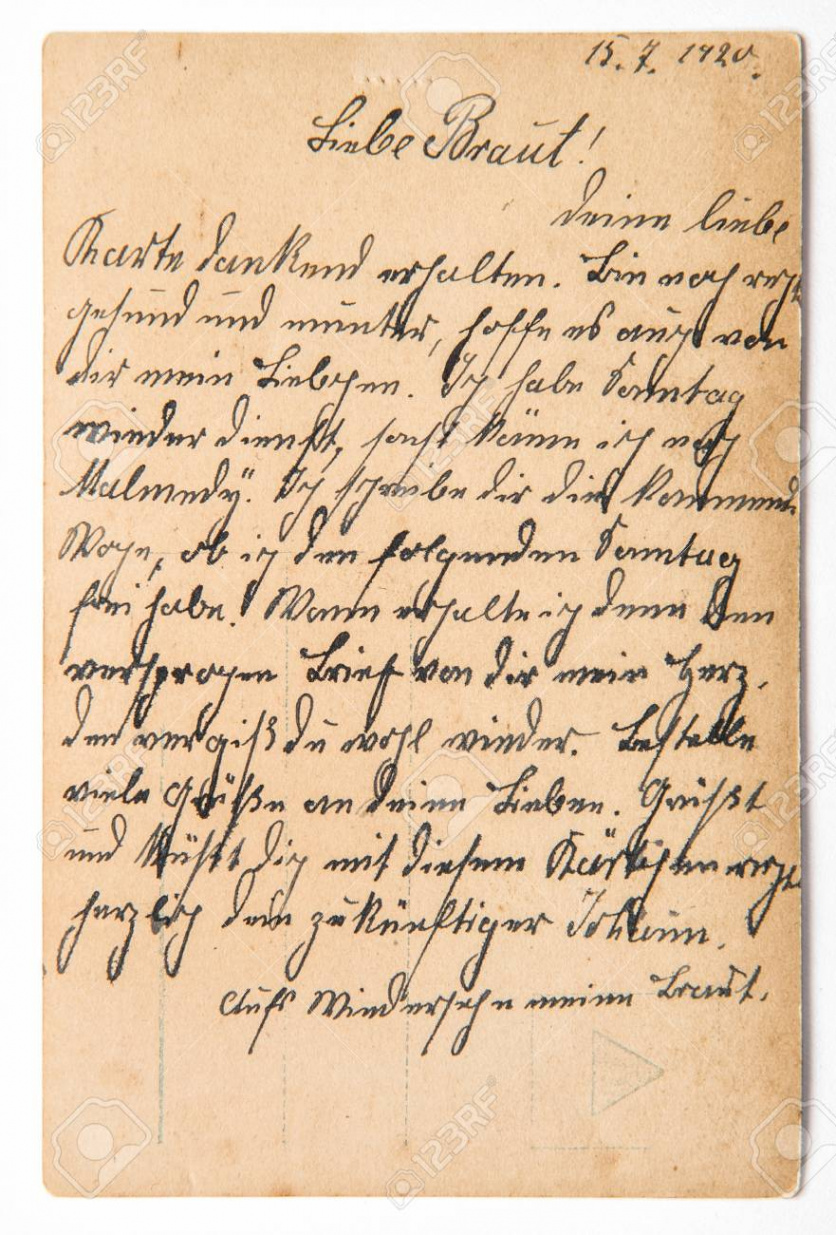 15. 7. 1920.
Liebe Braut!
Deine liebe
Karte dankend erhalten. Bin noch recht
gesund und munter, hoffe es auch von
dir mein Liebchen. Ich habe Sonntag
wieder Dienst, sonst käme ich nach
Malmedy. Ich schreibe dir die kommende
Woche, ob ich den folgenden Sonntag
frei habe. Wann erhalte ich denn den
versprochen Brief von dir mein Herz,
den vergißt du wohl wieder. Bestelle
viele Grüße an deine Lieben. Grüßt
und küßt dich mit diesem Kärtchen recht
herzlich dein zukünftiger Johann.
Aufs Wiedersehn meine Braut.
123RF